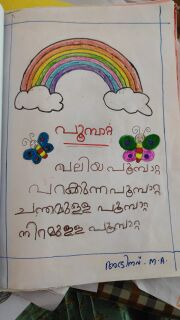 പൂമ്പാറ്റ
വലിയ പൂമ്പാറ്റ
പറക്കുന്ന പൂമ്പാറ്റ
ചന്തമുള്ള പൂമ്പാറ്റ
നിറമുള്ള പൂമ്പാറ്റ
M.A.